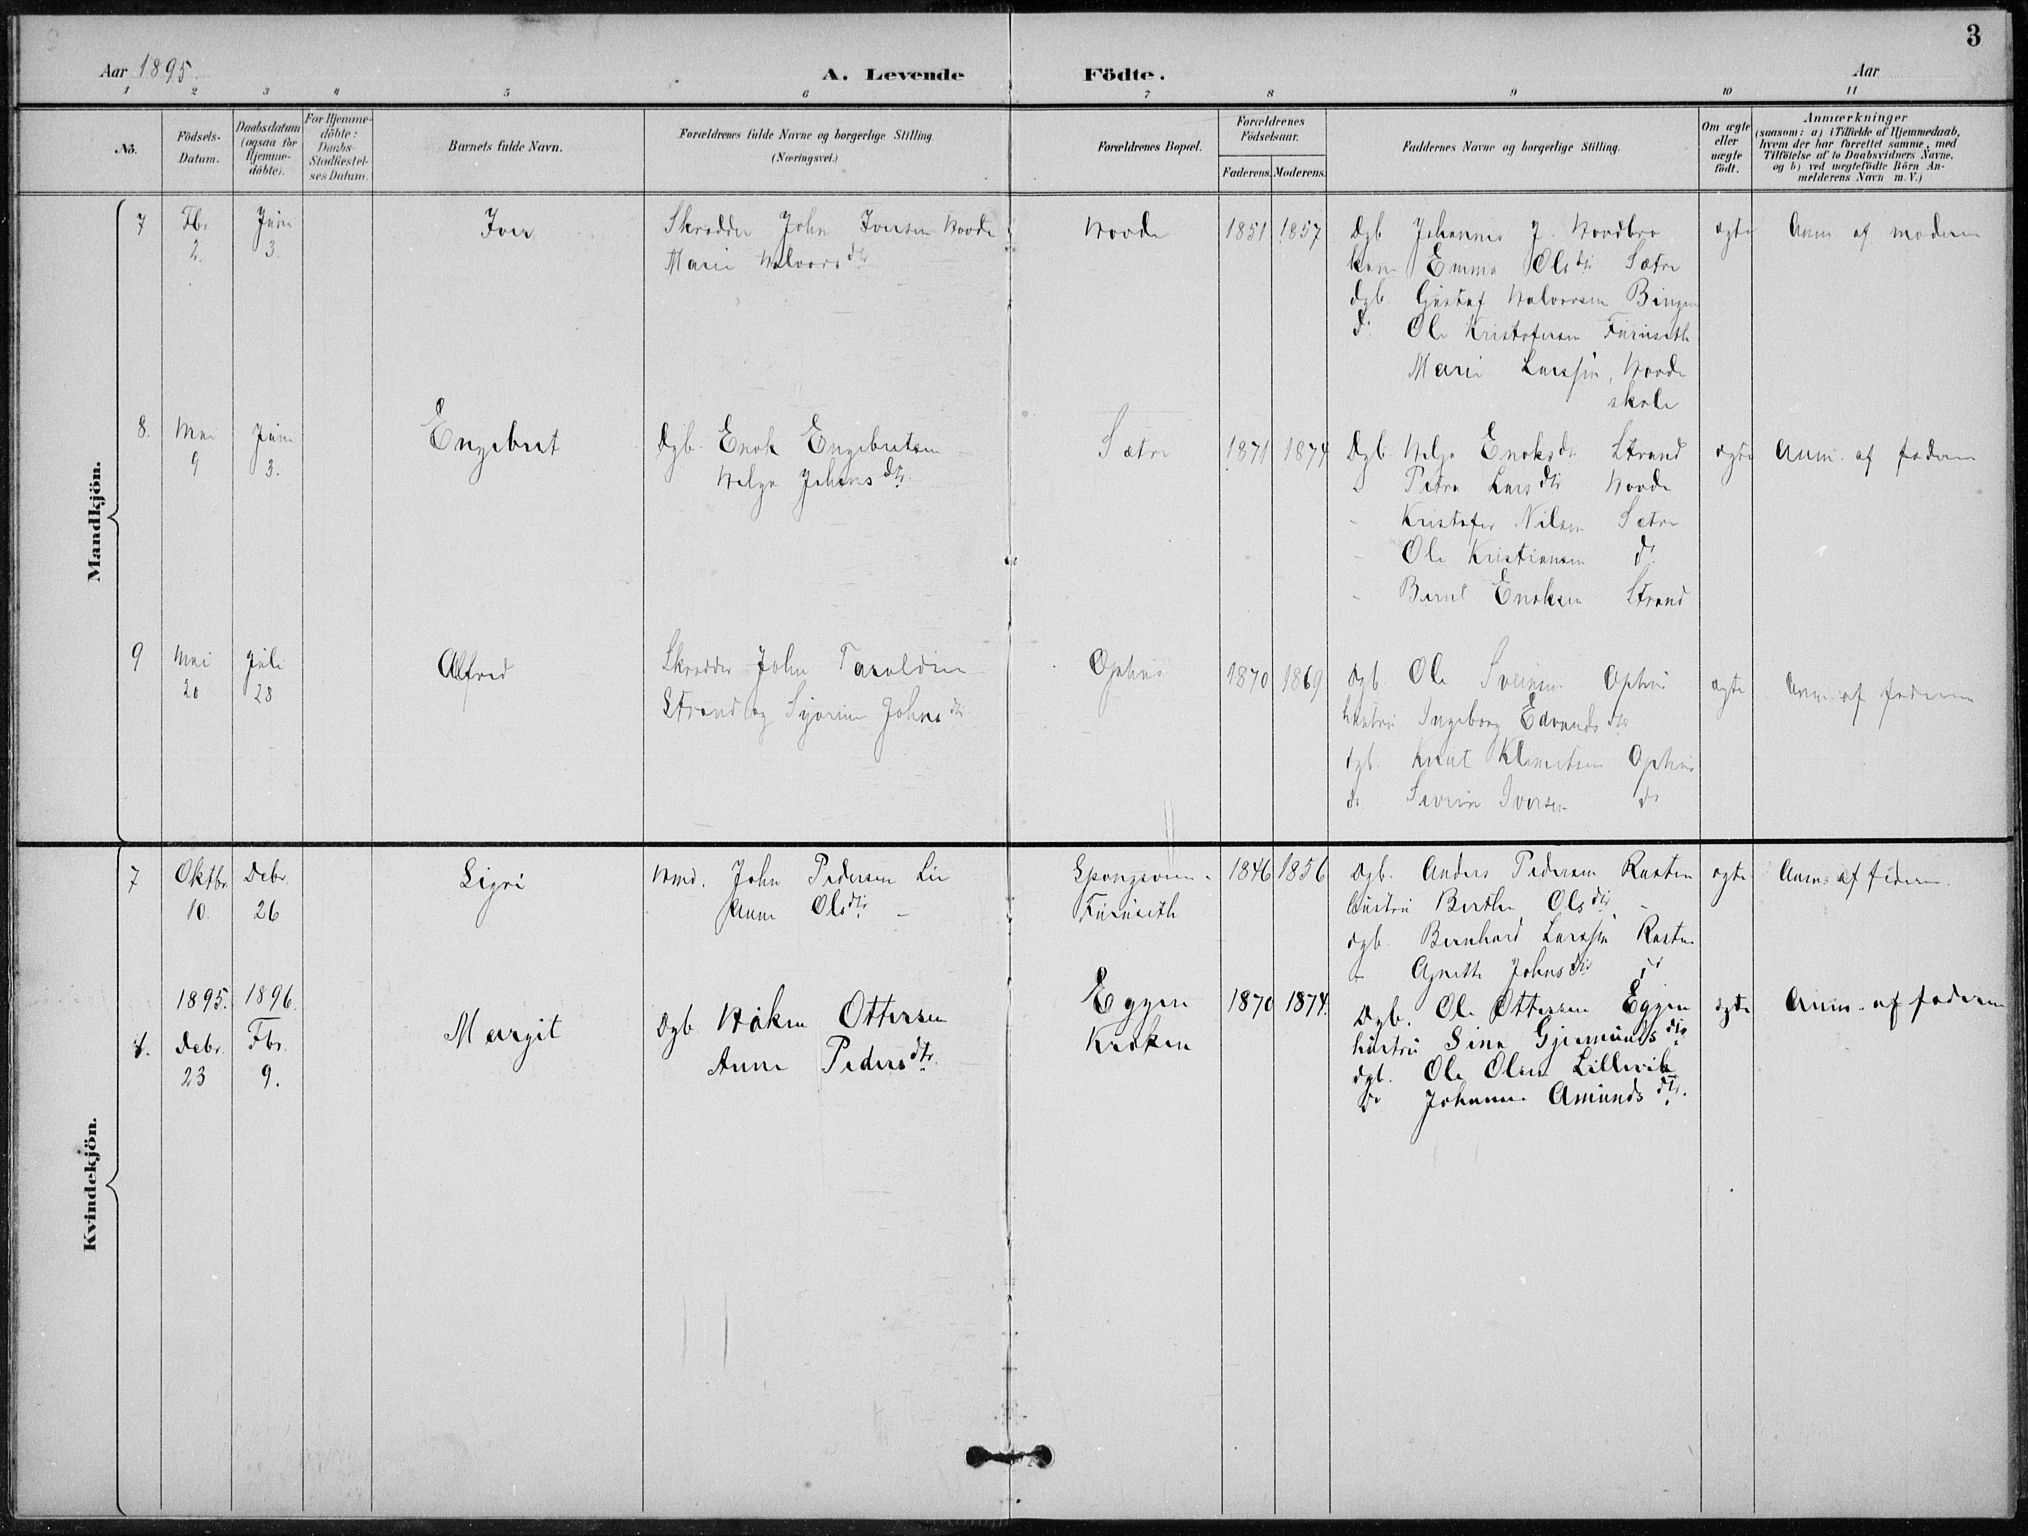 3
Aar 1895
A. Levende Födte.
Aar
1 2 3 4 5 6 7 8 9 10 11
No.
Födsels-Datum.
Daabsdatum (ogsaa för Hjemme-döbte).
For Hjemme-döbte: Daabs-Stadfæstel-ses Datum.
Barnets fulde Navn.
Forældrenes fulde Navne og borgerlige Stilling.
(Næringsvei.)
Forældrenes Bopæl.
Forældrenes Födselsaar.
Faderens. Moderens.
Faddernes Navne og borgerlige Stilling.
Om ægte eller uægte födt.
Anmærkninger
(saasom: a) i Tilfælde af Hjemmedaab, hvem der har forrettet samme, med Tilföielse af to Daabsvidners Navne, og b) ved uægtefödte Börn Anmelderens Navn m. V.)
Mandkjön.
7 Fbr Juni Iver Skrædder John Iversen Hovde Hovde 1851 1857 Dgb Johannes J. Hovdbro ægte Anm af moderen
2. 3. Marie Halvorsdtr kone Emma Olsdtr Sætre
dgb. Gustaf Halvorsen Bingen
do Ole Kristofersen Furuseth
Marie Larssen, Hovde
skole
8. Mai Juni Engebret Dgb. Enok Engebretsen Sætre 1871 1874 Dgb. Helge Enoksdtr Strand ægte Anm. af faderen
9 3. Helga Johnsdtr. - Petra Larsdtr Hovde
- Kristofer Nilsen Sætre
- Ole Kristiansen do
- Bernt Enoksen Strand
9 Mai Juli Alfred Skrædder John Taraldsen Ophus 1870 1869 dgb. Ole Svensen Ophus ægte Anm. af faderen
20 28 Strand og Syverine Johnsdtr hustru Ingeborg Edvardsdtr
dgb. Knut Klemetsen Ophus
do Severin Iversen do
Kvindekjön.
7 Oktbr. Debr. Sigri Hmd. John Pedersen Lie 1846 1856 Dgb. Anders Pedersen Rasten ægte Anm. af faderen.
10. 26 Anne Olsdtr - Furuseth hustru Berthe Olsdtr -
dgb. Bernhard Larssen Rasten
- Agnethe Johnsdtr do
1895. 1896. Margit Dgb. Håken Ottersen Eggen 1870 1874. Dgb. Ole Ottersen Eggen ægte Anm. af faderen
8. Debr. Fbr. Anne Pedersdtr. Kroken hustru Sina Gjermundsdtr
23 9. dgb. Ole Olsen Lillevik
do Johanne Amundsdtr.